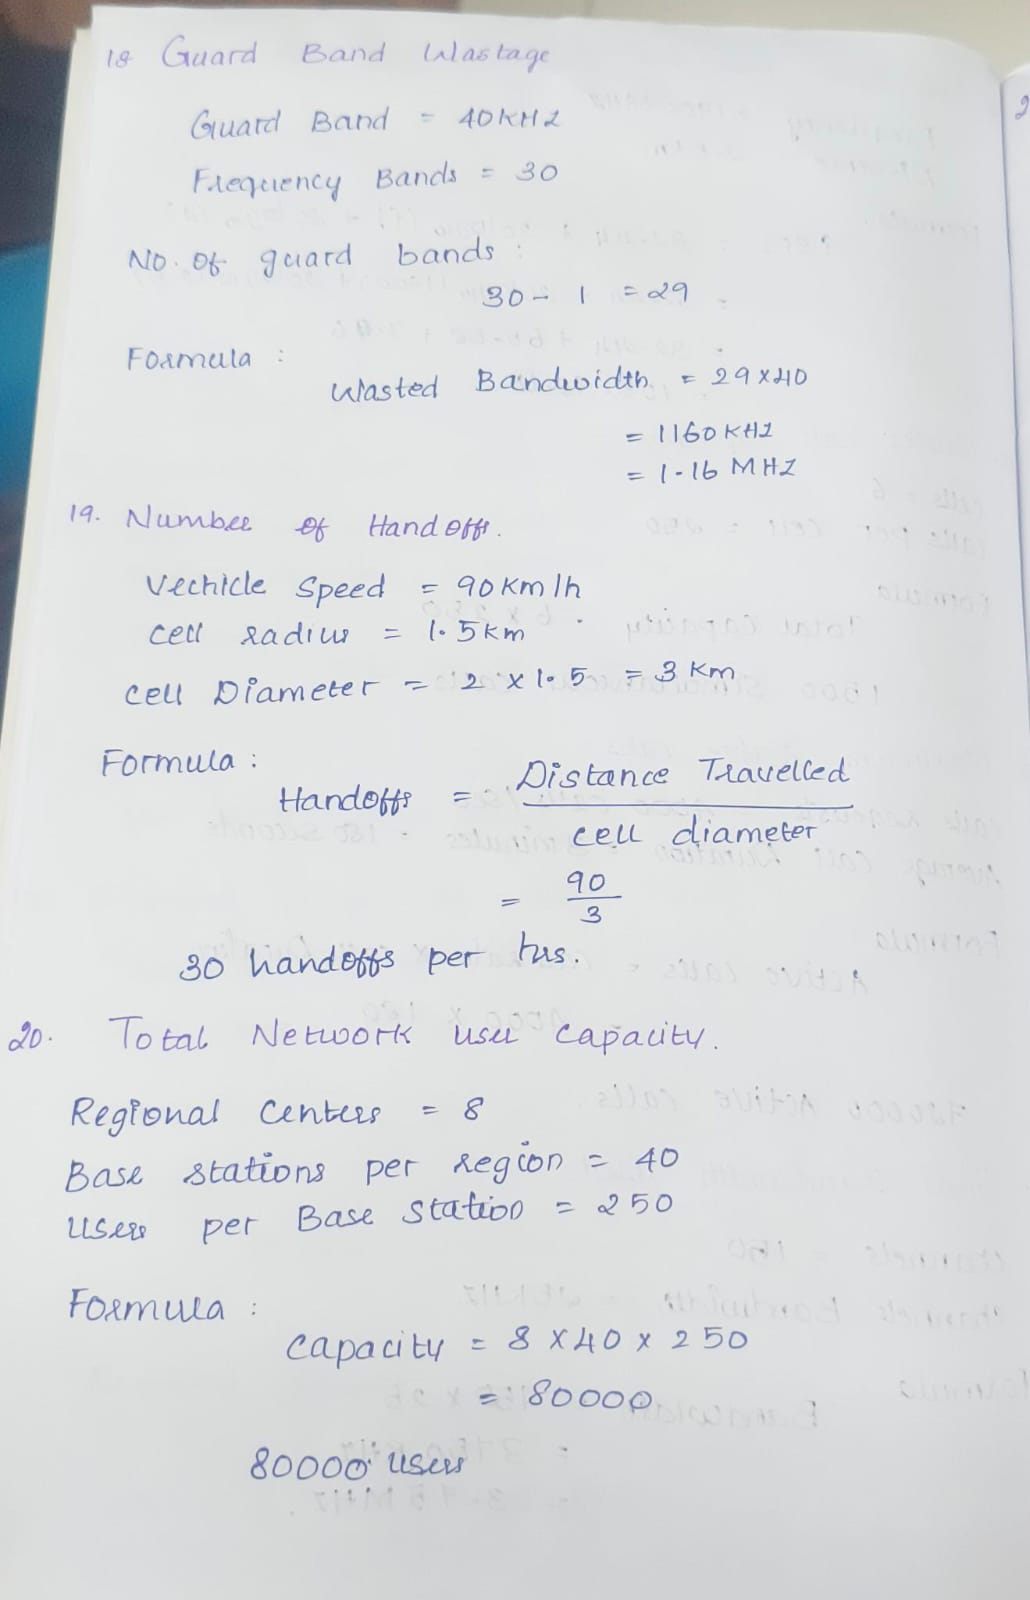 18 Guard Band Wastage
Guard Band = 40KHZ
Frequency Bands = 30
No. of guard bands :
30 - 1 = 29
Formula :
Wasted Bandwidth = 29x40
= 1160 KHZ
= 1.16 MHZ
19. Number of Handoffs.
Vechicle Speed = 90km/h
cell radius = 1.5km
cell Diameter = 2 x 1.5 = 3 Km
Formula :
Handoffs = Distance Travelled
cell diameter
= 90
3
30 handoffs per hrs.
20. Total Network user capacity.
Regional Centers = 8
Base stations per region = 40
Users per Base station = 250
Formula :
capacity = 8 x 40 x 250
= 80000
80000 users